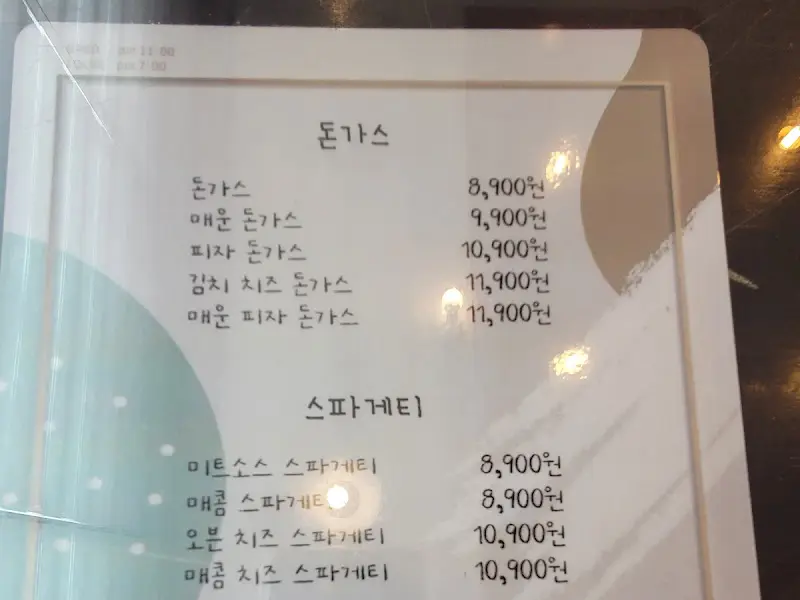 am 11:00
pm 7:00
돈가스
돈가스 8,900원
매운 돈가스 9,900원
피자 돈가스 10,900원
김치 치즈 돈가스 11,900원
매운 피자 돈가스 11,900원
스파게티
미트소스 스파게티 8,900원
매콤 스파게티 8,900원
오븐 치즈 스파게티 10,900원
매콤 치즈 스파게티 10,900원